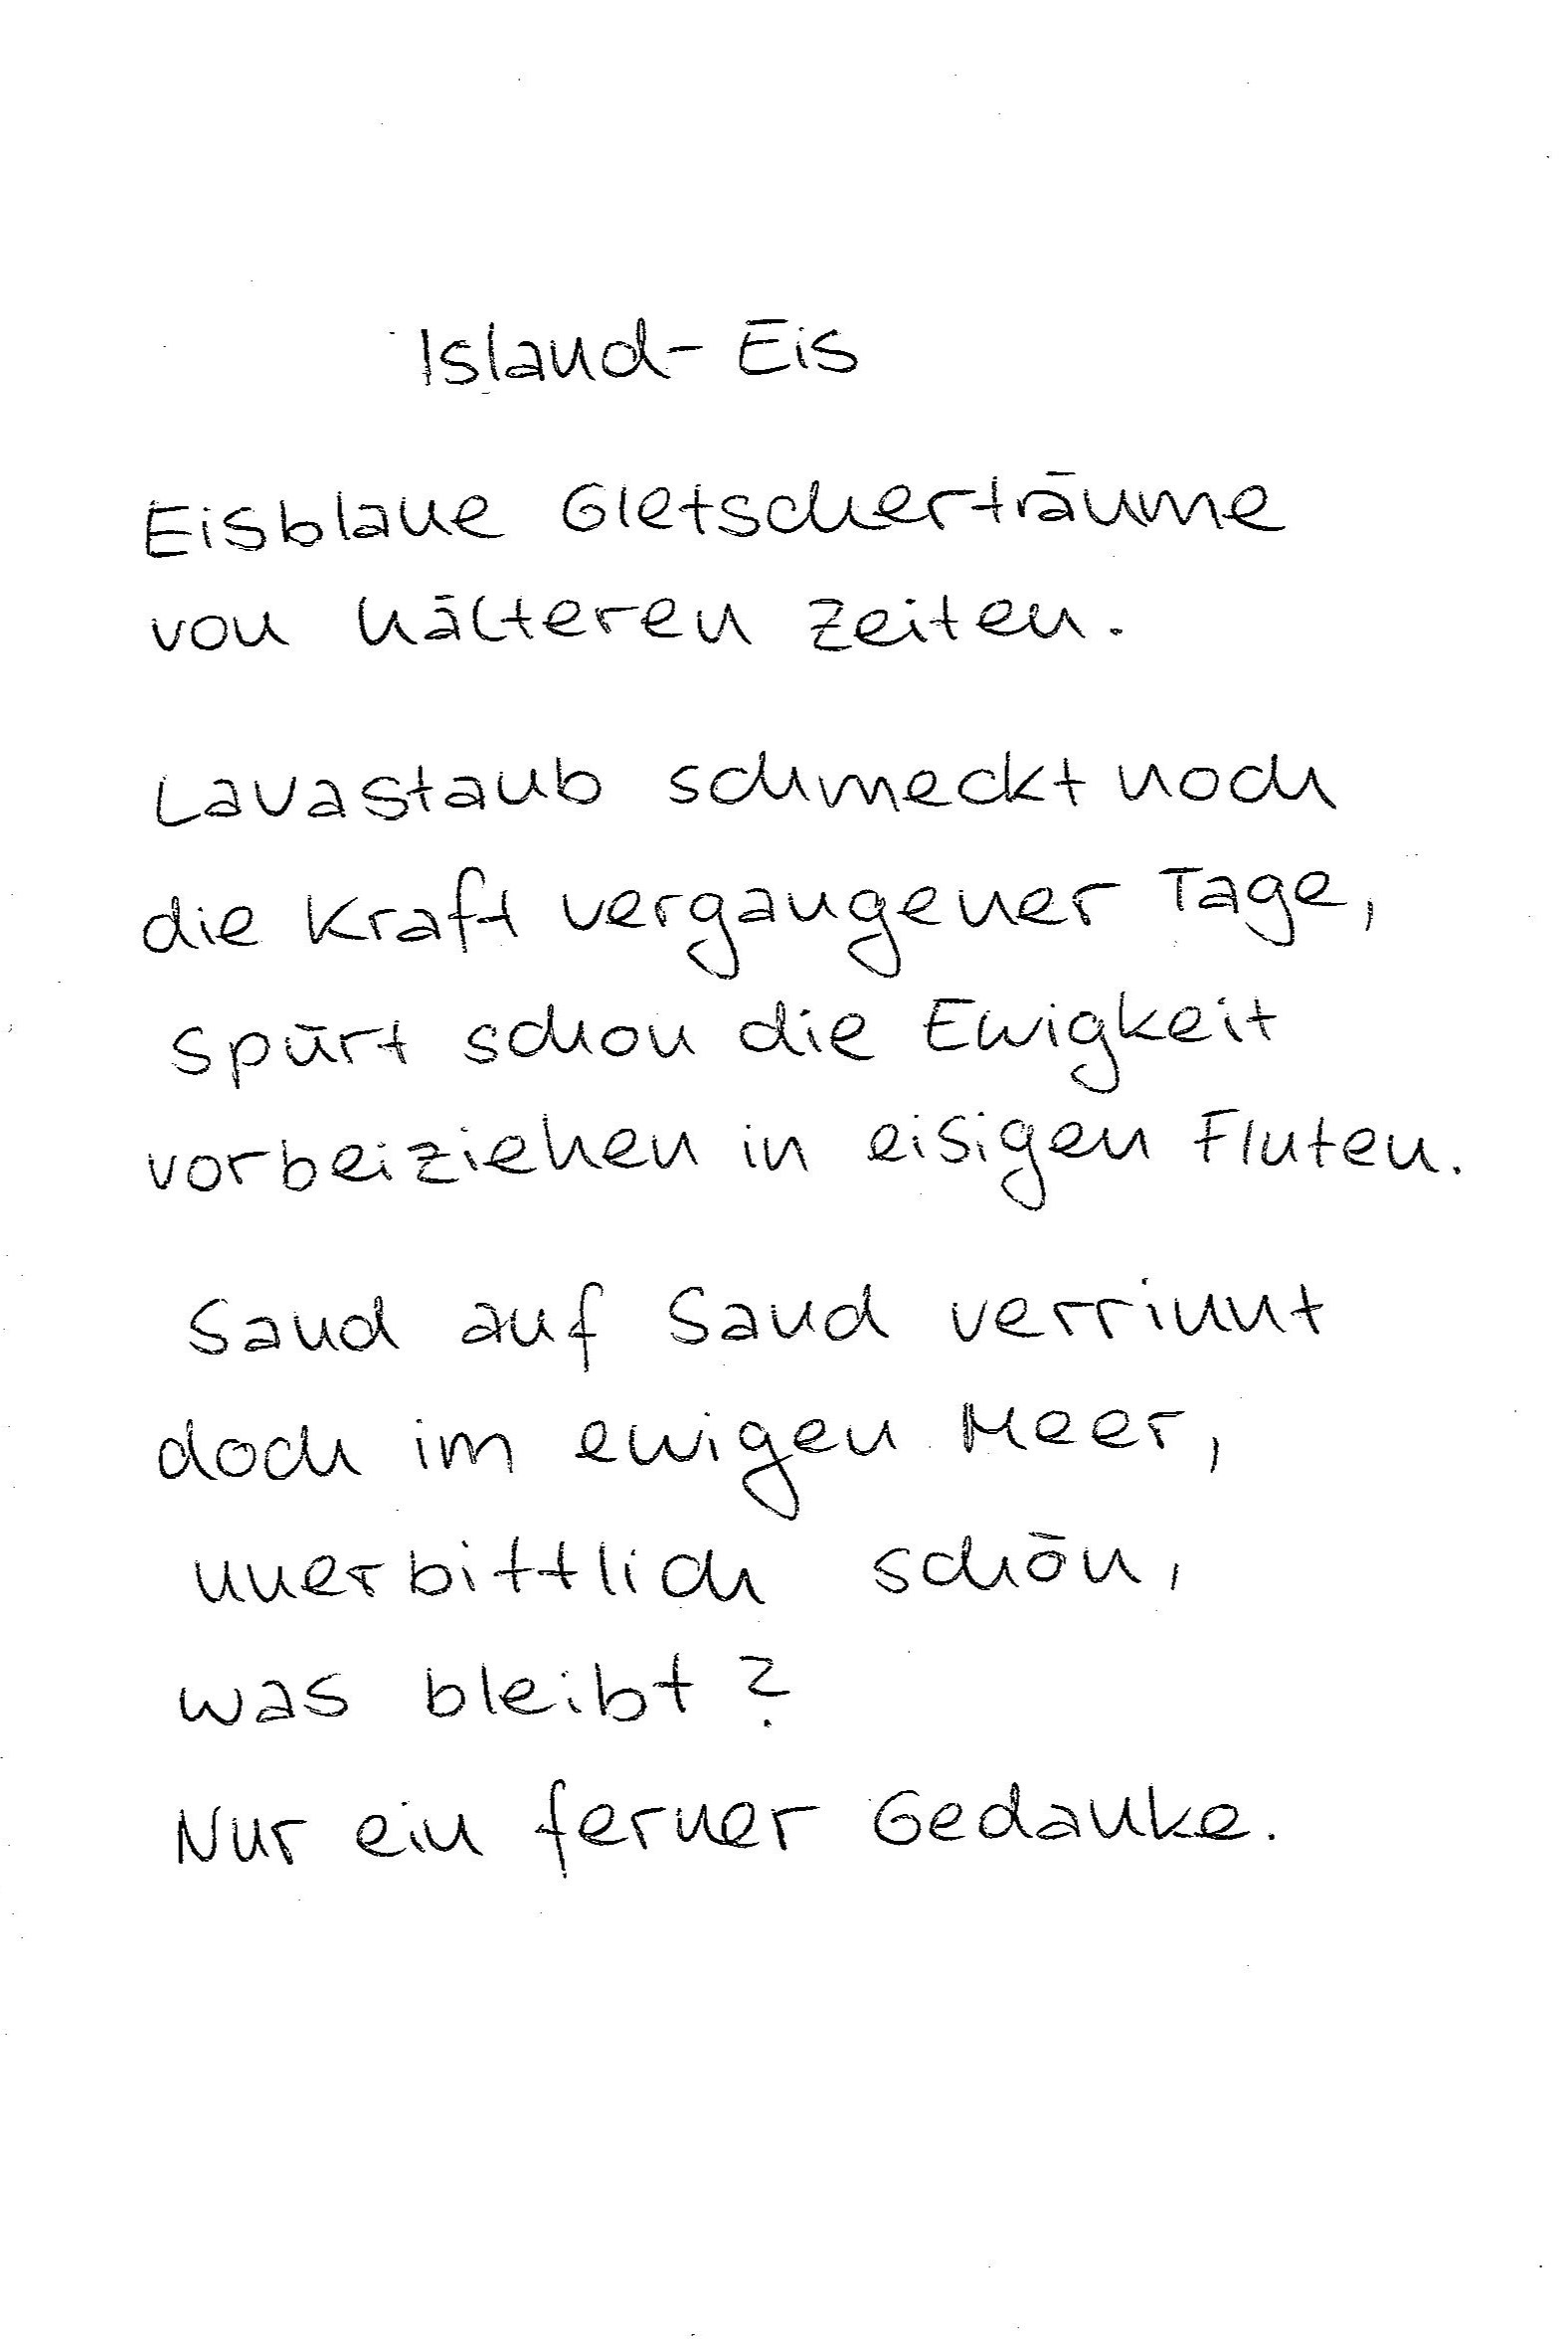 Island-Eis
Eisblaue Gletscherträume
von kälteren Zeiten.
Lavastaub schmeckt noch
die Kraft vergangener Tage,
spürt schon die Ewigkeit
vorbeiziehen in eisigen Fluten.
Sand auf Sand verrinnt
doch im ewigen Meer,
unerbittlich schön,
was bleibt?
Nur ein ferner Gedanke.